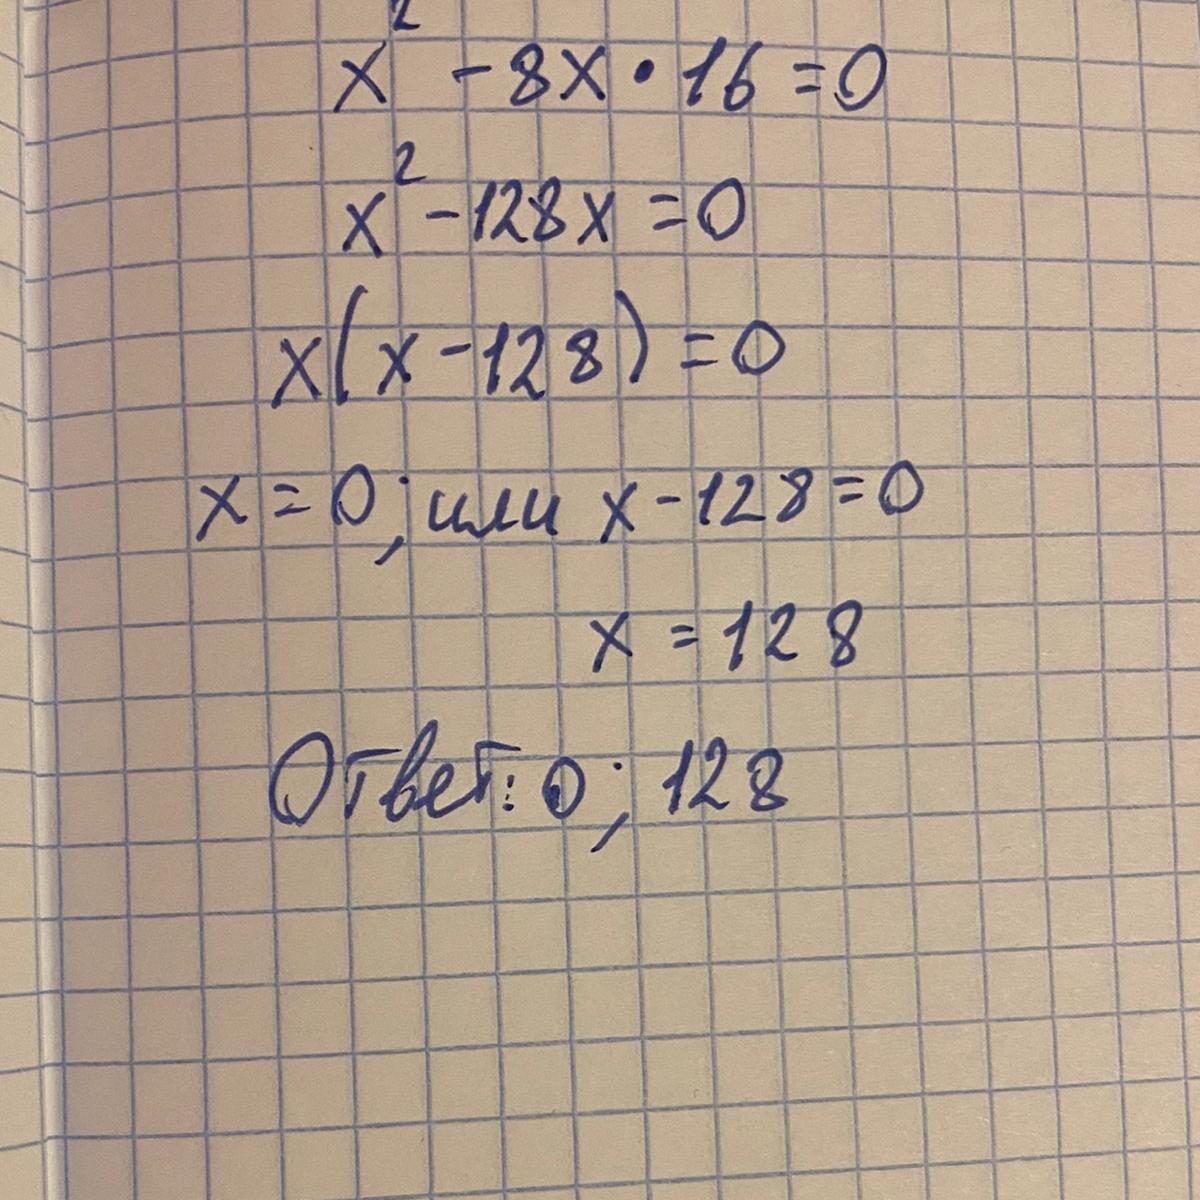 x² - 8x · 16 = 0
x² - 128x = 0
x(x - 128) = 0
x = 0; или x - 128 = 0
x = 128
Ответ: 0; 128